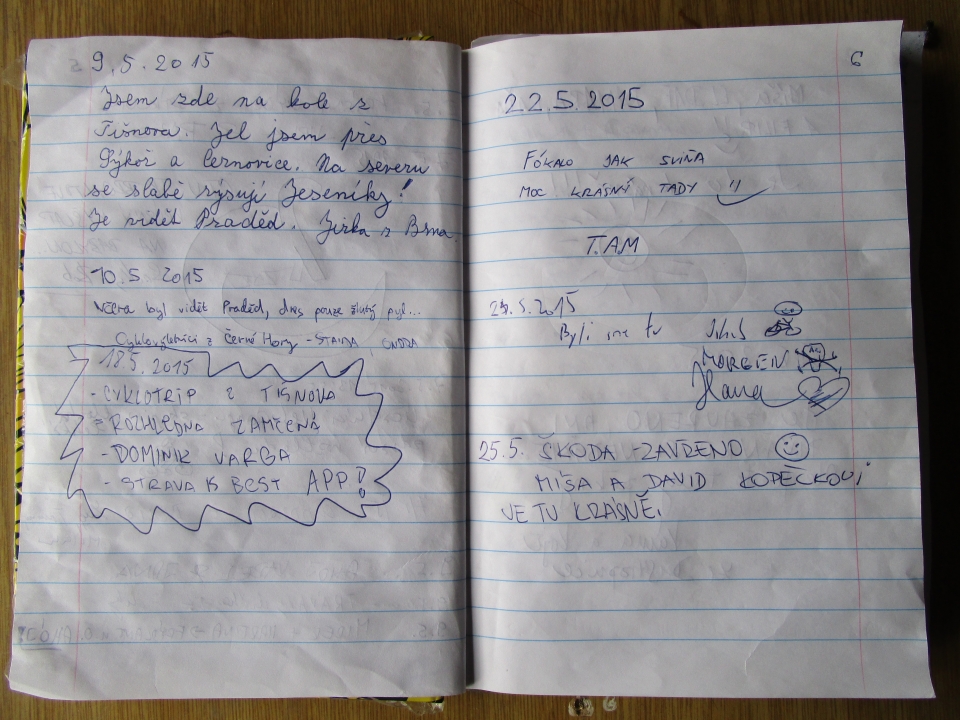 9.5.2015
Jsem zde na kole z
Tišnova. Jel jsem přes
Sýkoř a Černovice. Na severu
se slabě rýsují Jeseníky!
Je vidět Praděd. Jirka z Brna
10.5.2015
Včera byl vidět Praděd, dnes pouze žlutý pyl...
Cyklovýletníci z Černé Hory -
18.5.2015
- CYKLOTRIP Z TIŠNOVA
- ROZHLEDNA ZAMČENÁ
- DOMINIK VARGA
- STRAVA IS BEST APP!
6
22.5.2015
FÓKALO JAK SVIŇA
MOC KRÁSNÝ TADY
T.AM
.5.2015
Byli sme tu
MORGEN
Hana
25.5. ŠKODA - ZAVŘENO
MÍŠA A DAVID KOPEČKOVI
JE TU KRÁSNĚ.